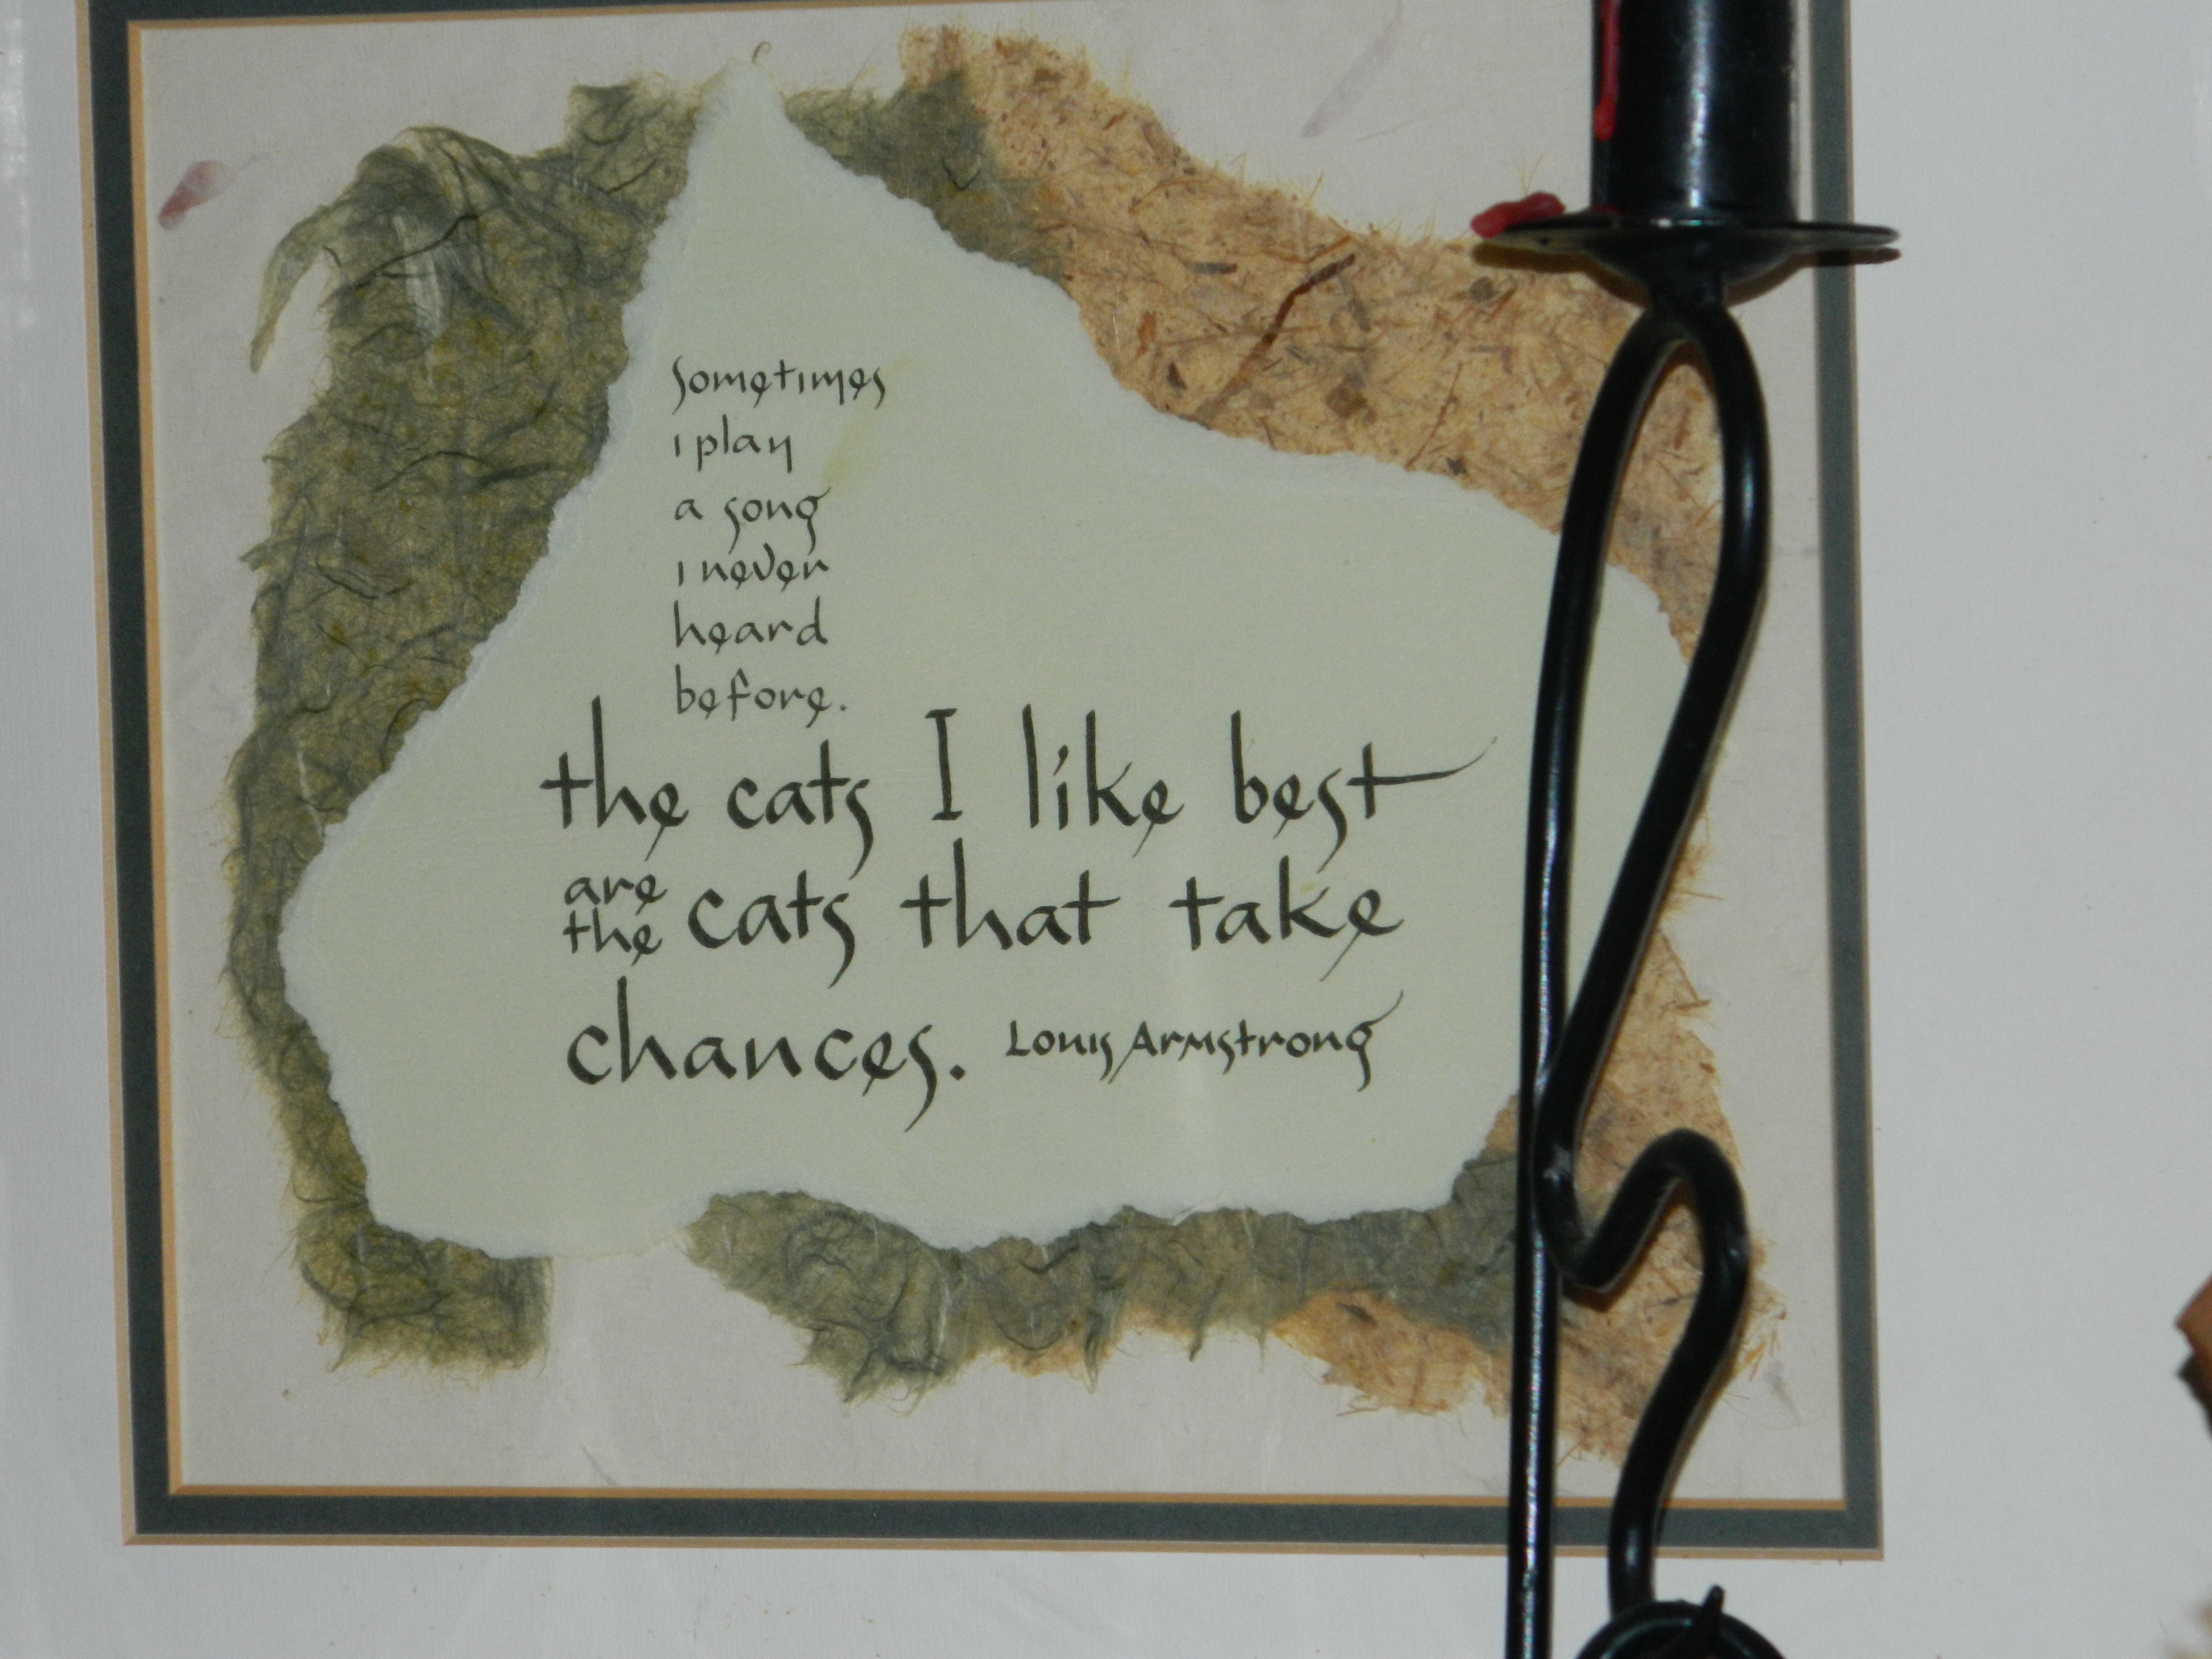 sometimes
i play
a song
i never
heard
before.
the cats I like best
are the cats that take
chances. Louis Armstrong